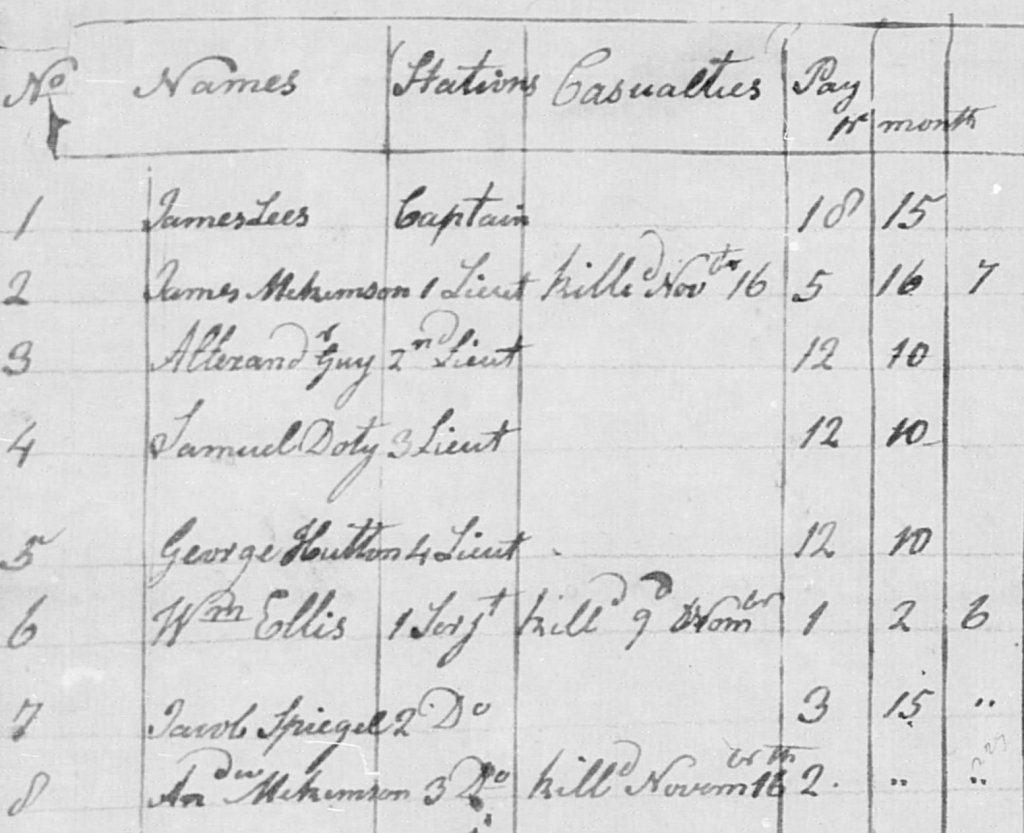 No Names Stations Casualties Pay
pr month
1 James Lees Captain 18 15
2 James Mckimson 1 Lieut killd Novbr 16 5 16 7
3 Allexandr Guy 2nd Lieut 12 10
4 Samuel Doty 3 Lieut 12 10
5 George Hutton 4 Lieut 12 10
6 Wm Ellis 1 Serjt killd 9d Nombr 1 2 6
7 Jacob Spiegel 2 Do 3 15 "
8 Andw Mckimson 3 Do killd Novembr 16th 2 " "